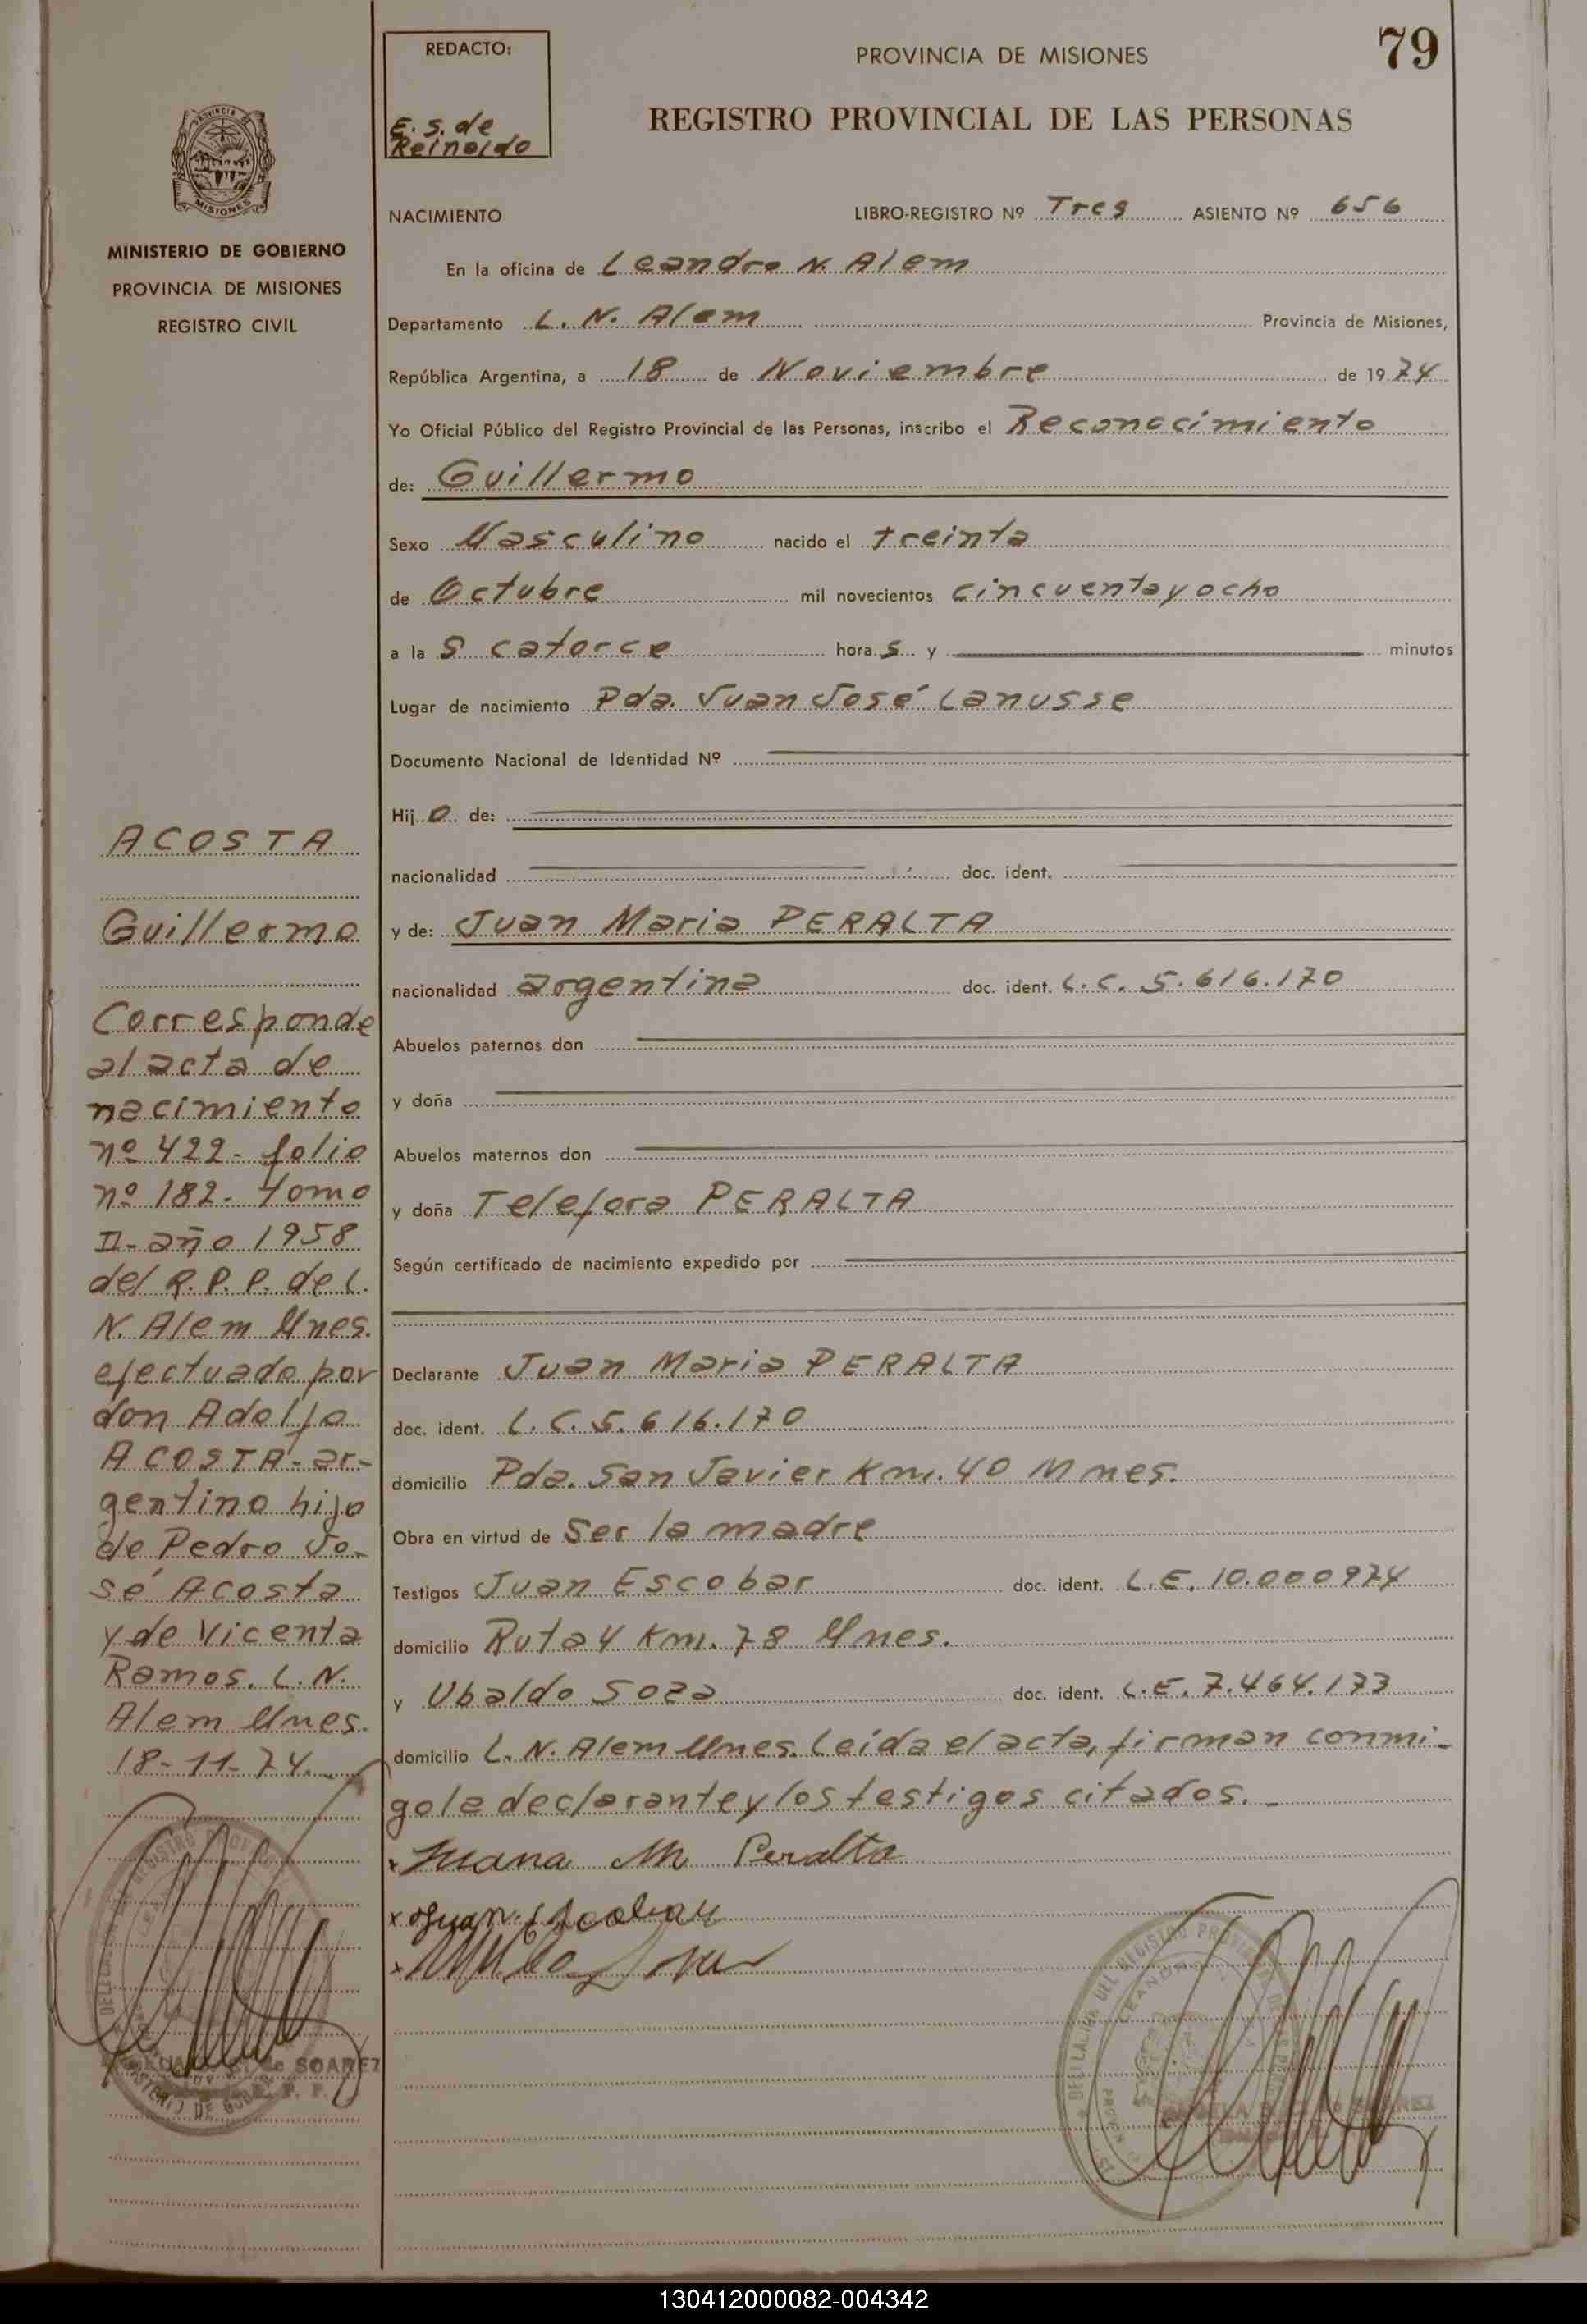 79
REDACTO:
E. S. de
Reinoldo
PROVINCIA DE MISIONES
REGISTRO PROVINCIAL DE LAS PERSONAS
NACIMIENTO
LIBRO-REGISTRO Nº Tres ASIENTO Nº 656
MISIONES
MINISTERIO DE GOBIERNO
PROVINCIA DE MISIONES
REGISTRO CIVIL
En la oficina de Leandro N. Alem
Departamento L. N. Alem Provincia de Misiones,
República Argentina, a 18 de Noviembre de 1974
Yo Oficial Público del Registro Provincial de las Personas, inscribo el Reconocimiento
de: Guillermo
Sexo Masculino nacido el treinta
de Octubre mil novecientos cincuenta y ocho
a la s catorce hora s y minutos
Lugar de nacimiento Pda. Juan José Lanusse
Documento Nacional de Identidad Nº
Hij o de:
nacionalidad doc. ident.
y de: Juan Maria PERALTA
nacionalidad argentina doc. ident. L.C. 5.616.170
Abuelos paternos don
y doña
Abuelos maternos don
y doña Telefora PERALTA
Según certificado de nacimiento expedido por
Declarante Juan Maria PERALTA
doc. ident. L.C. 5.616.170
domicilio Pda. San Javier Km. 40 Mnes.
Obra en virtud de Ser la madre
Testigos Juan Escobar doc. ident. L.E. 10.000974
domicilio Ruta 4 Km. 78 Mnes.
y Ubaldo Soza doc. ident. L.E. 7.464.173
domicilio L. N. Alem Mnes. Leída el acta, firman conmi-
go la declarante y los testigos citados.-
x Juana M Peralta
x Juan Escobar
x
ACOSTA
Guillermo
Corresponde
al acta de
nacimiento
nº 422- folio
nº 182- tomo
II- año 1958
del R.P.P. de L.
N. Alem Mnes.
efectuado por
don Adolfo
ACOSTA- ar-
gentino hijo
de Pedro Jo-
sé Acosta
y de Vicenta
Ramos. L. N.
Alem Mnes.
18-11-74.-
de SOAREZ
130412000082-004342